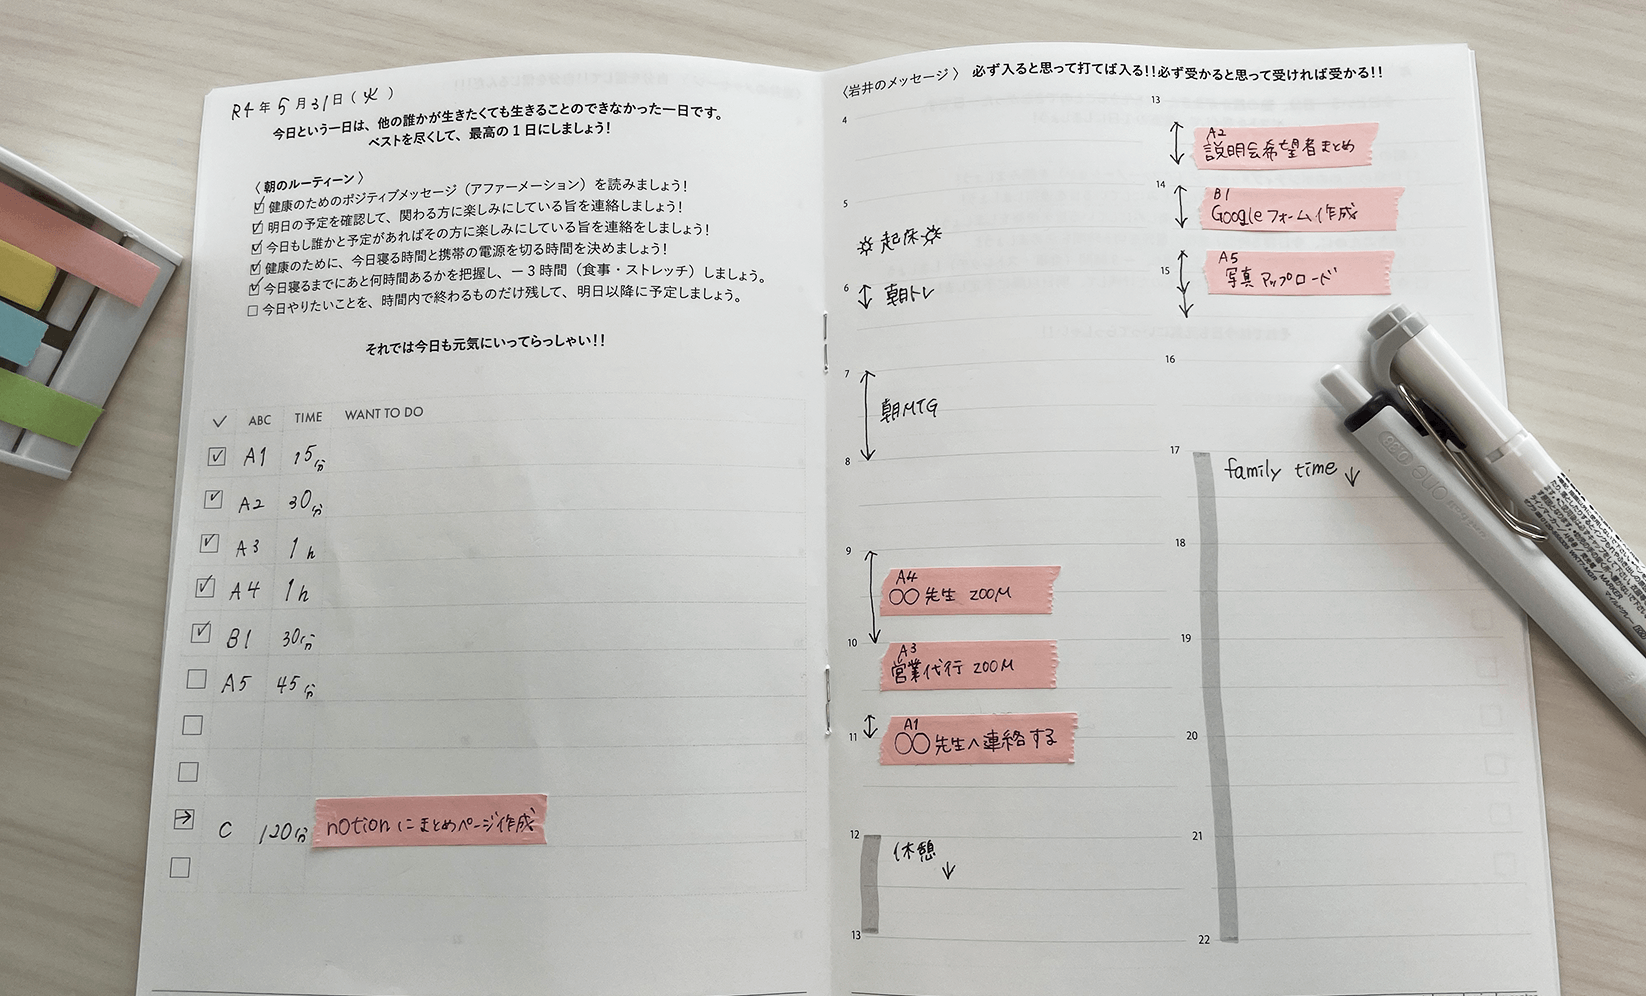 R4年5月31日(火)
今日という一日は、他の誰かが生きたくても生きることのできなかった一日です。
ベストを尽くして、最高の1日にしましょう!
〈朝のルーティーン〉
健康のためのポジティブメッセージ(アファーメーション)を読みましょう!
明日の予定を確認して、関わる方に楽しみにしている旨を連絡しましょう!
今日もし誰かと予定があればその方に楽しみにしている旨を連絡をしましょう!
健康のために、今日寝る時間と携帯の電源を切る時間を決めましょう!
今日寝るまでにあと何時間あるかを把握し、ー3時間(食事・ストレッチ)しましょう。
今日やりたいことを、時間内で終わるものだけ残して、明日以降に予定しましょう。
それでは今日も元気にいってらっしゃい!!
✓ ABC TIME WANT TO DO
A1 15分
A2 30分
A3 1h
A4 1h
B1 30分
A5 45分
C 120分 notionにまとめページ作成
〈岩井のメッセージ〉 必ず入ると思って打てば入る!!必ず受かると思って受ければ受かる!!
4
5
起床
6
朝トレ
7
朝MTG
8
9
A4
○○先生 ZOOM
10
A3
営業代行 ZOOM
A1
11
○○先生へ連絡する
12
休憩
↓
13
13
A2
説明会希望者まとめ
14
B1
Googleフォーム作成
A5
15
写真アップロード
16
17
family time ↓
18
19
20
21
22